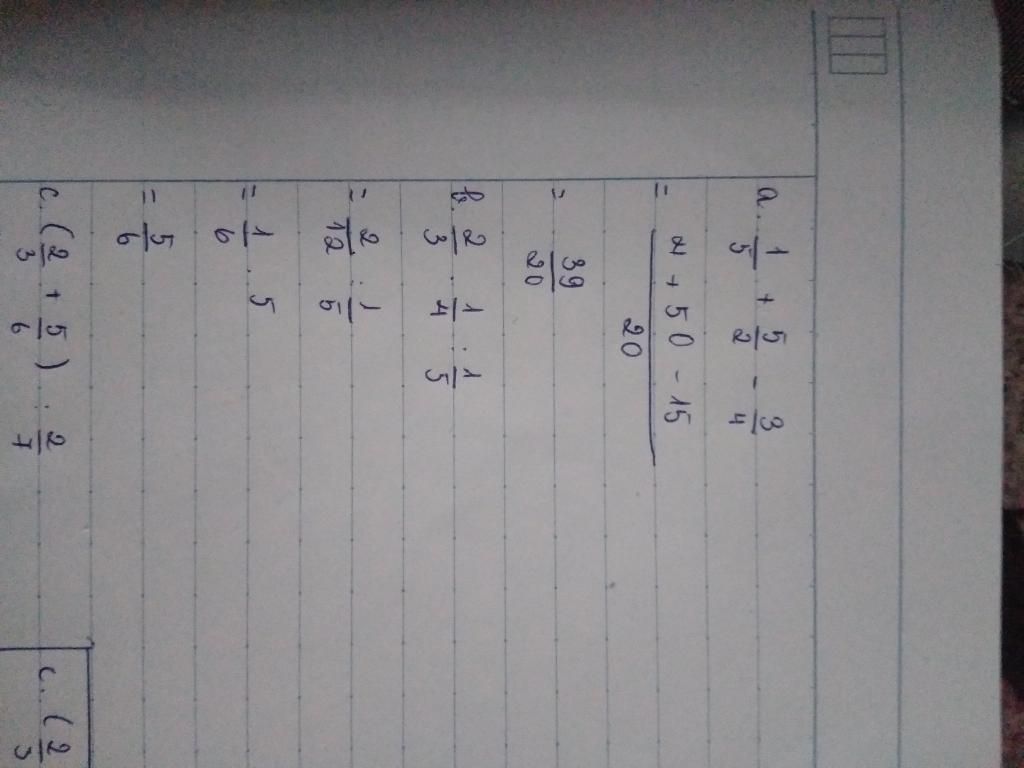 a. 1/5 + 5/2 - 3/4
= (4 + 50 - 15)/20
= 39/20
b. 2/3 . 1/4 : 1/5
= 2/12 : 1/5
= 1/6 . 5
= 5/6
c. (2/3 + 5/6) : 2/7
c. (2/3